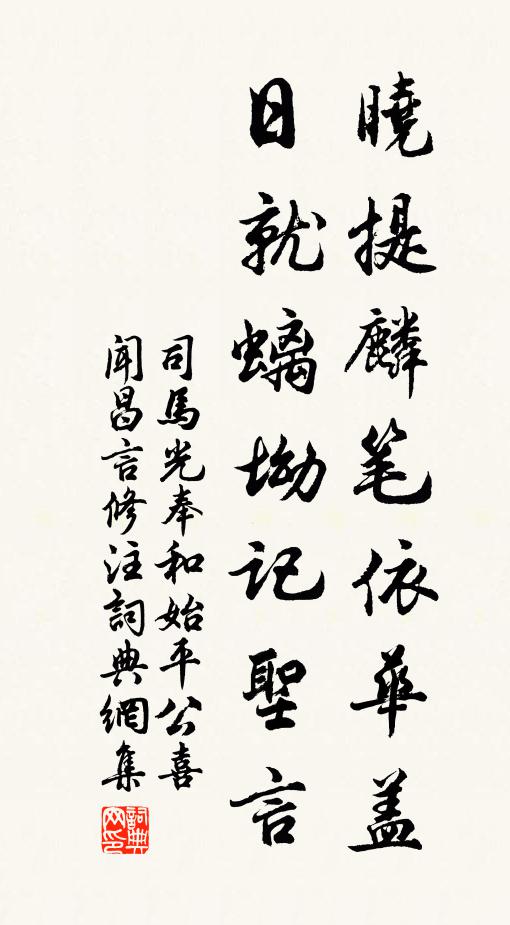 曉提麟笔依華盖
日就螭坳記聖言
司馬光奉和始平公喜
聞昌言修注詞典網集
詞典網印